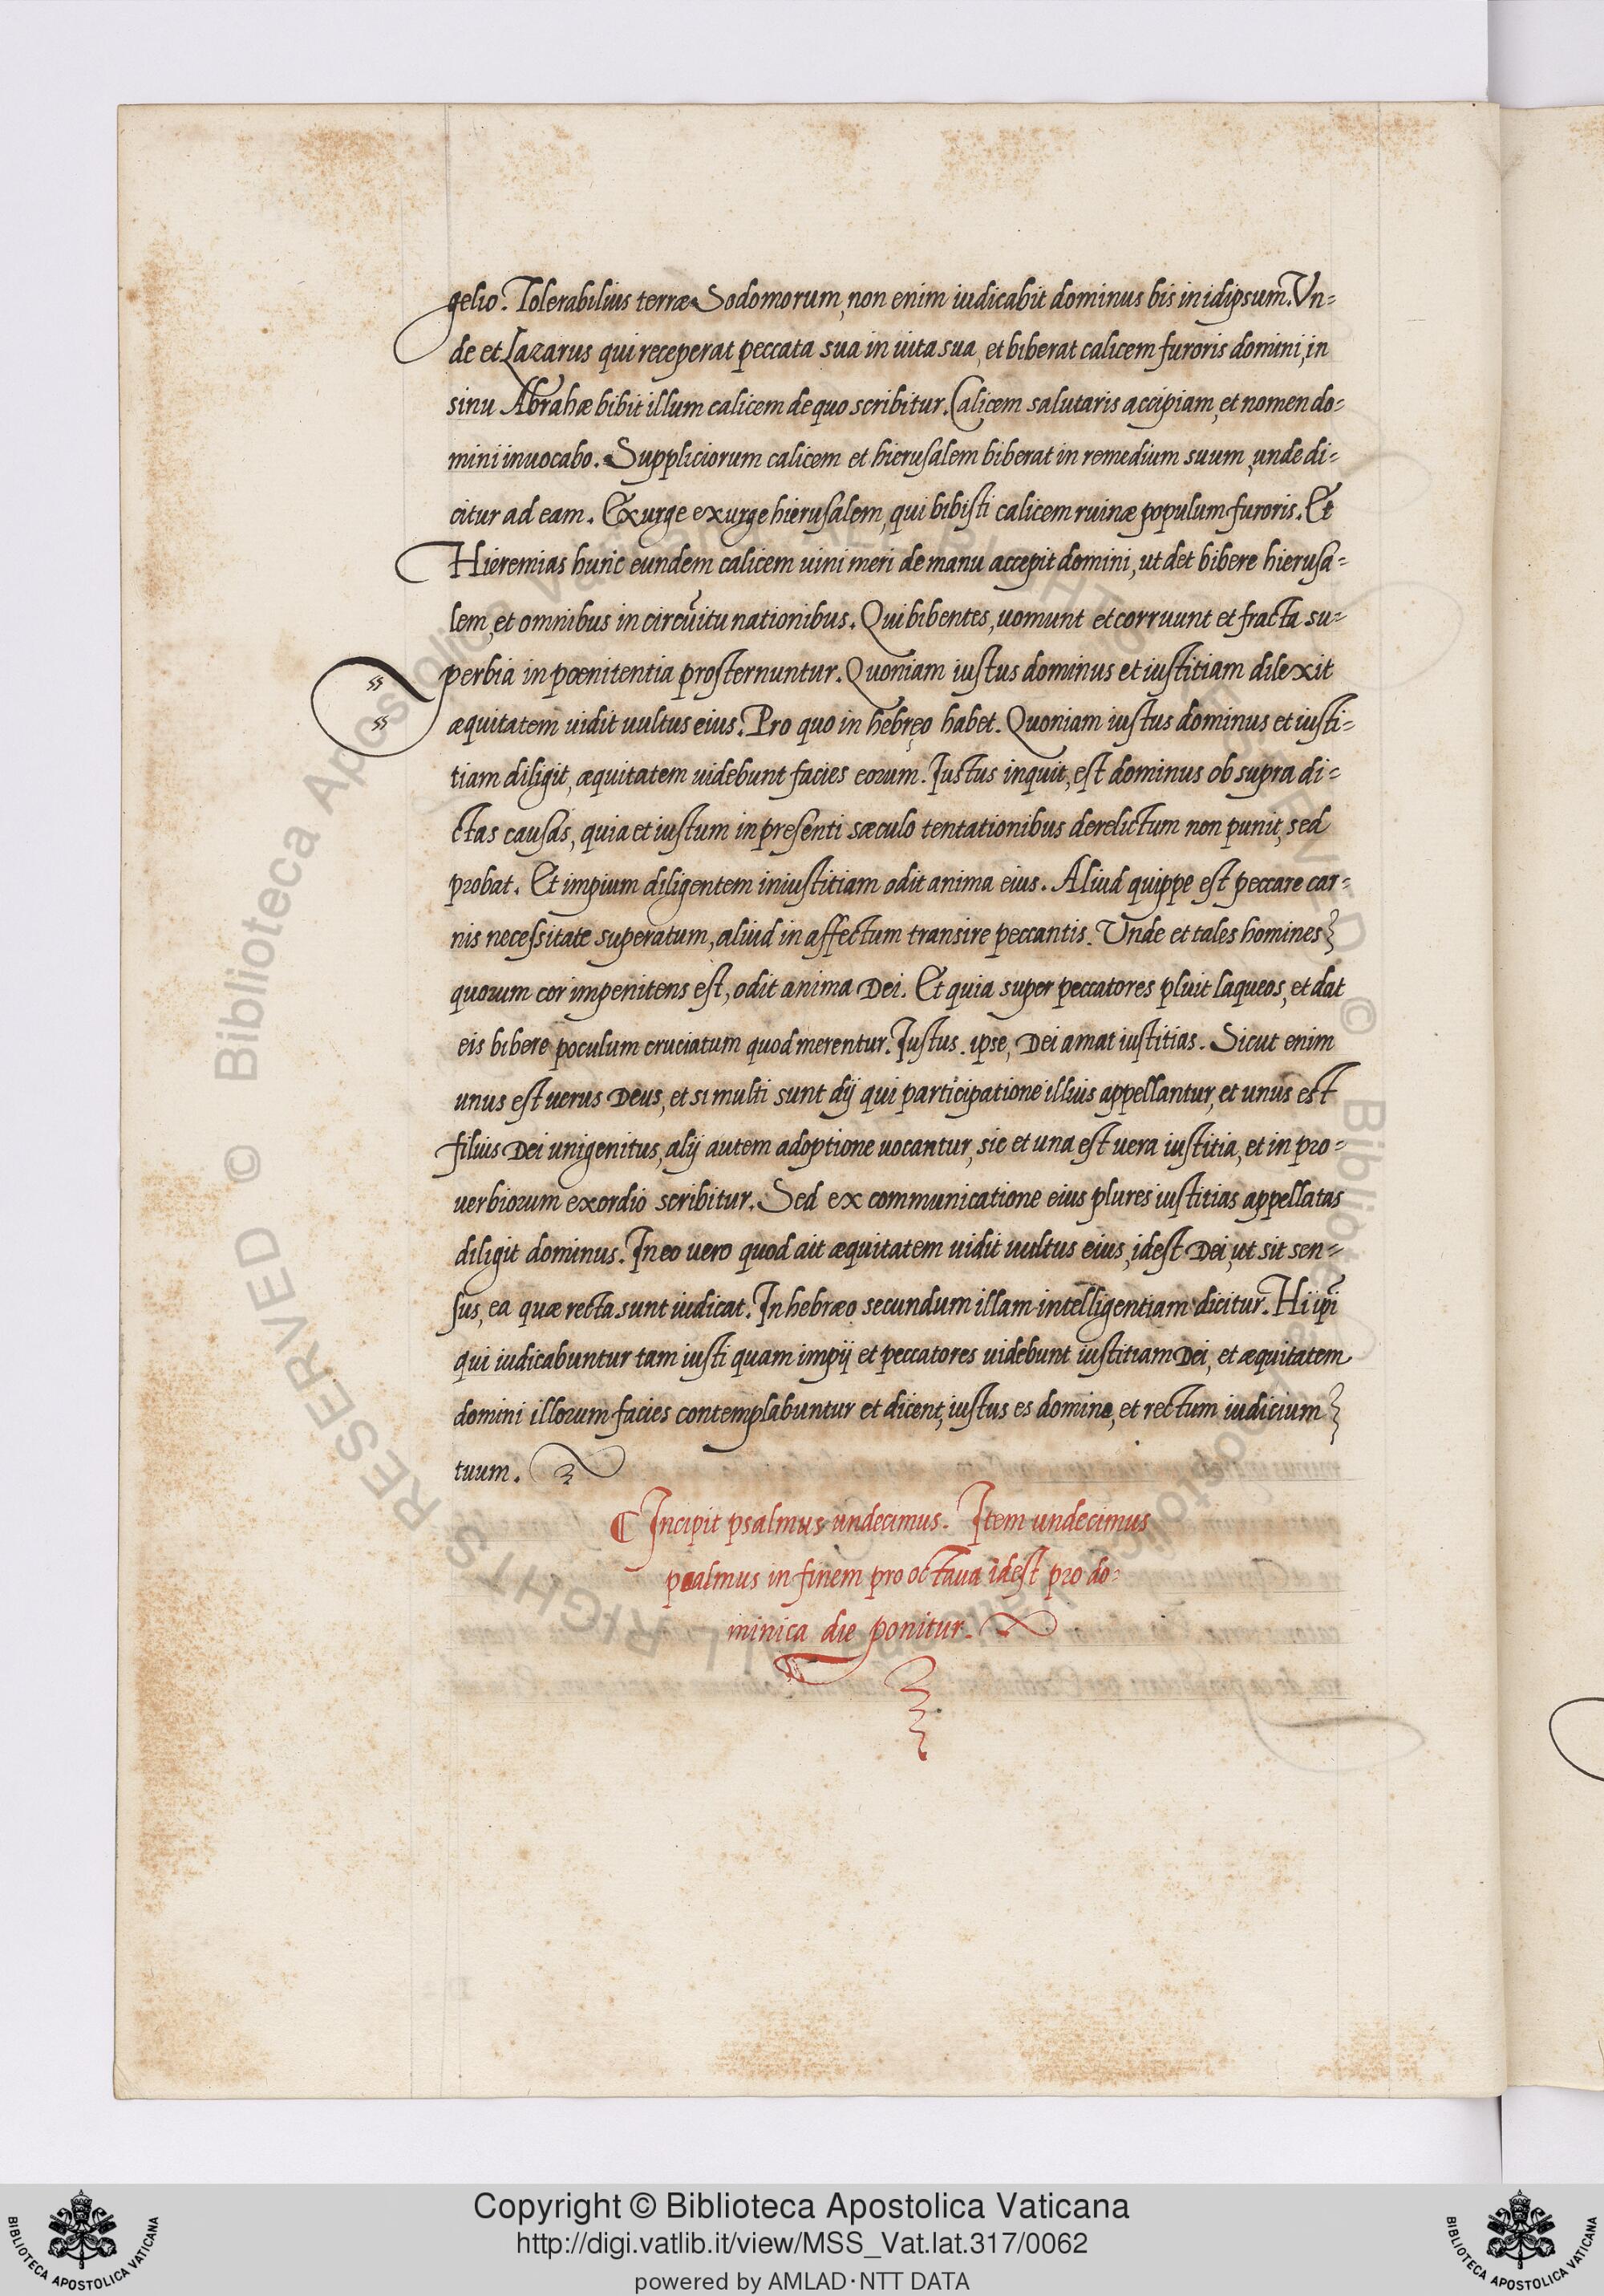 gelio. Tolerabilius terræ Sodomorum, non enim iudicabit dominus bis in idipsum. Vn=
de et Lazarus qui receperat peccata sua in uita sua, et biberat calicem furoris domini, in
sinu Abrahæ bibit illum calicem de quo scribitur. Calicem salutaris accipiam, et nomen do=
mini inuocabo. Suppliciorum calicem et hierusalem biberat in remedium suum, unde di=
citur ad eam. Exurge exurge hierusalem, qui bibisti calicem ruinæ populum furoris. Et
Hieremias hunc eundem calicem uini meri de manu accepit domini, ut det bibere hierusa=
lem, et omnibus in circuitu nationibus. Qui bibentes, uomunt et corruunt et fracta su=
perbia in pœnitentia prosternuntur. Quoniam iustus dominus et iustitiam dilexit
æquitatem uidit uultus eius. Pro quo in hebręo habet. Quoniam iustus dominus et iusti=
tiam diligit, æquitatem uidebunt facies eorum. Iustus inquit, est dominus ob supra di=
ctas causas, quia et iustum in presenti sæculo tentationibus derelictum non punit, sed
probat. Et impium diligentem iniustitiam odit anima eius. Aliud quippe est peccare car=
nis necessitate superatum, aliud in affectum transire peccantis. Unde et tales homines
quorum cor impenitens est, odit anima Dei. Et quia super peccatores pluit laqueos, et dat
eis bibere poculum cruciatum quod merentur. Iustus. ipse, Dei amat iustitias. Sicut enim
unus est uerus Deus, et si multi sunt dij qui participatione illius appellantur, et unus est
filius Dei unigenitus, alij autem adoptione uocantur, sic et una est uera iustitia, et in pro=
uerbiorum exordio scribitur. Sed ex communicatione eius plures iustitias appellatas
diligit dominus. In eo uero quod ait æquitatem uidit uultus eius, idest Dei, ut sit sen=
sus, ea quæ recta sunt iudicat. In hebræo secundum illam intelligentiam dicitur. Hi ip̃i
qui iudicabuntur tam iusti quam impij et peccatores uidebunt iustitiam Dei, et æquitatem
domini illorum facies contemplabuntur et dicent, iustus es domine, et rectum iudicium
tuum.
Incipit psalmus undecimus. Item undecimus
psalmus in finem pro octaua idest pro do=
minica die ponitur.
© Biblioteca Apostolica Vaticana ALL RIGHTS RESERVED
Copyright © Biblioteca Apostolica Vaticana
http://digi.vatlib.it/view/MSS_Vat.lat.317/0062
powered by AMLAD·NTT DATA
BIBLIOTECA APOSTOLICA VATICANA
BIBLIOTECA APOSTOLICA VATICANA